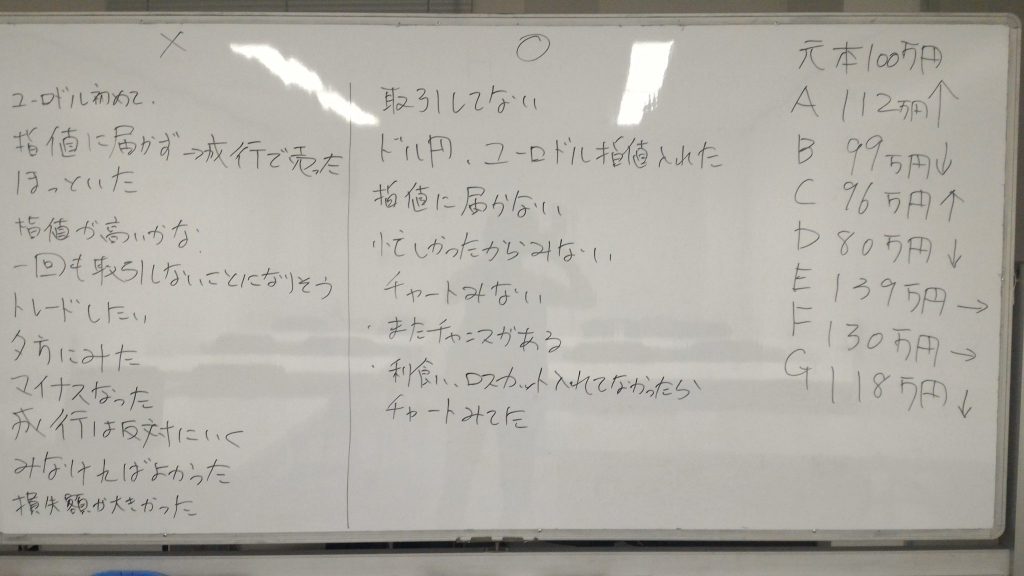 ×
ユーロドル初めて.
指値に届かず→成行で売った
ほっといた
指値が高いかな
一回も取引しないことになりそう
トレードしたい
夕方にみた
マイナスなった
成行は反対にいく
みなければよかった
損失額が大きかった
○
取引してない
ドル円、ユーロドル指値入れた
指値に届かない
忙しかったからみない
チャートみない
・またチャンスがある
・利食い、ロスカット入れてなかったら
チャートみてた
元本100万円
A 112万円↑
B 99万円↓
C 96万円↑
D 80万円↓
E 139万円→
F 130万円→
G 118万円↓